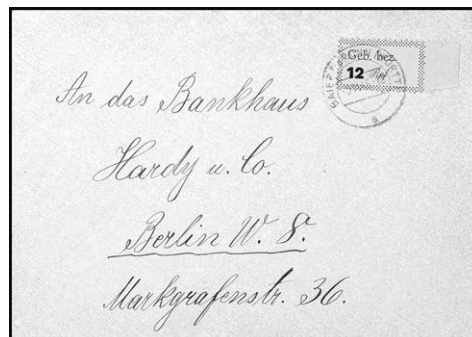 Geb. bez.
12 Rpf
An das Bankhaus
Hardy u. Co.
Berlin W. 8.
Markgrafenstr. 36.